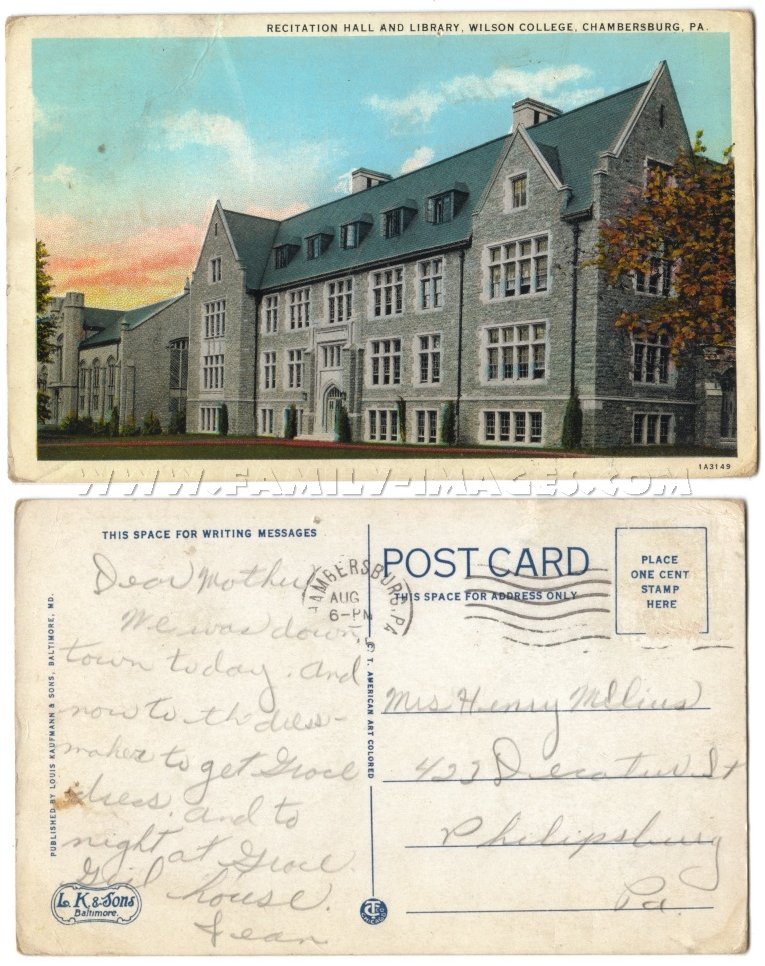 RECITATION HALL AND LIBRARY, WILSON COLLEGE, CHAMBERSBURG, PA.
1A3149
WWW.FAMILY-IMAGES.COM
THIS SPACE FOR WRITING MESSAGES
Dear Mother
We was down
town today. and
now to th dress-
maker to get Grace
dress. and to
night at Grace
house.
Jean
PUBLISHED BY LOUIS KAUFMANN & SONS, BALTIMORE, MD.
L. K. & Sons
Baltimore.
C. T. AMERICAN ART COLORED
CHAMBERSBURG, PA
AUG
6-PM
POST CARD
THIS SPACE FOR ADDRESS ONLY
PLACE
ONE CENT
STAMP
HERE
Mrs Henry
422 Decatur St
Philipsburg
Pa.